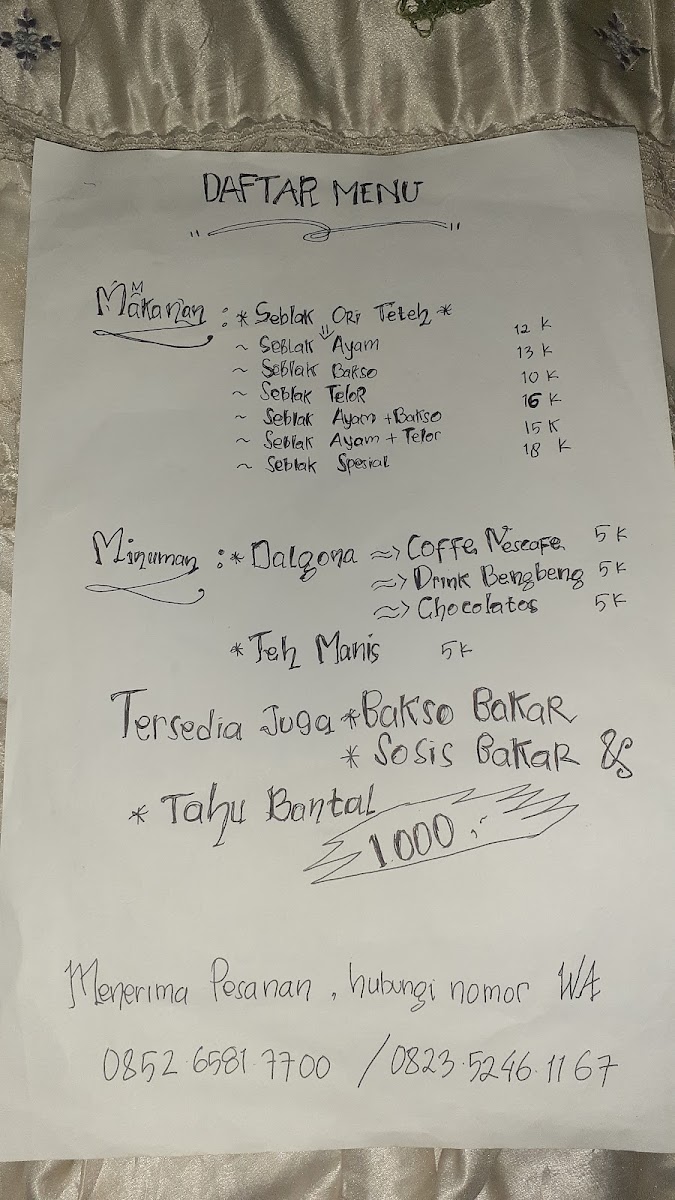 DAFTAR MENU
Makanan : * Seblak Ori Teteh *
~ Seblak Ayam 12 K
~ Seblak Bakso 13 K
~ Seblak Telor 10 K
~ Seblak Ayam + Bakso 16 K
~ Seblak Ayam + Telor 15 K
~ Seblak Spesial 18 K
Minuman : * Dalgona ≈> Coffe Nescafe 5 K
≈> Drink Bengbeng 5 K
≈> Chocolatos 5 K
* Teh Manis 5 K
Tersedia Juga * Bakso Bakar
* Sosis Bakar &
* Tahu Bantal
1.000,-
Menerima Pesanan, hubungi nomor WA
0852.6581.7700 / 0823.5246.1167